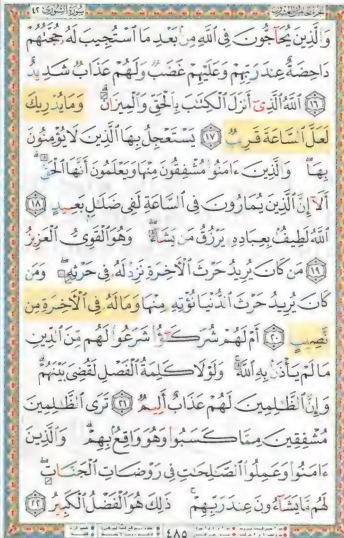 سورة الشورى ٤٢
وَالَّذِينَ يُحَاجُّونَ فِي اللَّهِ مِن بَعْدِ مَا اسْتُجِيبَ لَهُ حُجَّتُهُمْ
دَاحِضَةٌ عِندَ رَبِّهِمْ وَعَلَيْهِمْ غَضَبٌ وَلَهُمْ عَذَابٌ شَدِيدٌ
١٦ اللَّهُ الَّذِي أَنزَلَ الْكِتَٰبَ بِالْحَقِّ وَالْمِيزَانَ ۗ وَمَا يُدْرِيكَ
لَعَلَّ السَّاعَةَ قَرِيبٌ ١٧ يَسْتَعْجِلُ بِهَا الَّذِينَ لَا يُؤْمِنُونَ
بِهَا ۖ وَالَّذِينَ ءَامَنُوا مُشْفِقُونَ مِنْهَا وَيَعْلَمُونَ أَنَّهَا الْحَقُّ ۗ
أَلَا إِنَّ الَّذِينَ يُمَارُونَ فِي السَّاعَةِ لَفِي ضَلَٰلٍ بَعِيدٍ ١٨
اللَّهُ لَطِيفٌ بِعِبَادِهِ يَرْزُقُ مَن يَشَاءُ ۖ وَهُوَ الْقَوِيُّ الْعَزِيزُ
١٩ مَن كَانَ يُرِيدُ حَرْثَ الْآخِرَةِ نَزِدْ لَهُ فِي حَرْثِهِ ۖ وَمَن
كَانَ يُرِيدُ حَرْثَ الدُّنْيَا نُؤْتِهِ مِنْهَا وَمَا لَهُ فِي الْآخِرَةِ مِن
نَّصِيبٍ ٢٠ أَمْ لَهُمْ شُرَكَٰٓؤُا شَرَعُوا لَهُم مِّنَ الدِّينِ
مَا لَمْ يَأْذَن بِهِ اللَّهُ ۚ وَلَوْلَا كَلِمَةُ الْفَصْلِ لَقُضِيَ بَيْنَهُمْ ۗ
وَإِنَّ الظَّٰلِمِينَ لَهُمْ عَذَابٌ أَلِيمٌ ٢١ تَرَى الظَّٰلِمِينَ
مُشْفِقِينَ مِمَّا كَسَبُوا وَهُوَ وَاقِعٌ بِهِمْ ۗ وَالَّذِينَ
ءَامَنُوا وَعَمِلُوا الصَّٰلِحَٰتِ فِي رَوْضَاتِ الْجَنَّاتِ ۖ
لَهُم مَّا يَشَاءُونَ عِندَ رَبِّهِمْ ۚ ذَٰلِكَ هُوَ الْفَضْلُ الْكَبِيرُ ٢٢
٤٨٥